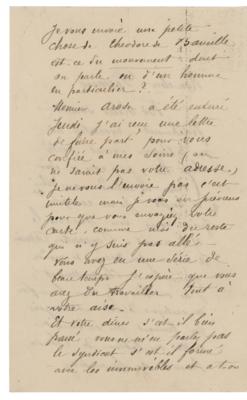 Je vous envoie une petite
chose de Théodore de Banville
est-ce du mouvement dont
on parle ou d'un homme
en particulier ?
Arosa a été enterré
Jeudi, j'ai reçu une lettre
de faire part pour vous
confiée à mes soins (on
ne savait pas votre adresse,
je ne vous l'envoie pas c'est
inutile mais je vous en préviens
pour que vous envoyiez votre
carte, comme moi du reste
qui n'y suis pas allé.
Vous avez eu une série de
beau temps j'espère que vous
avez pu travailler tout à
votre aise.
Et votre dîner s'est il bien
passé vous ne m'en parlez pas
le syndicat s'est il formé
avec les et a-t-on